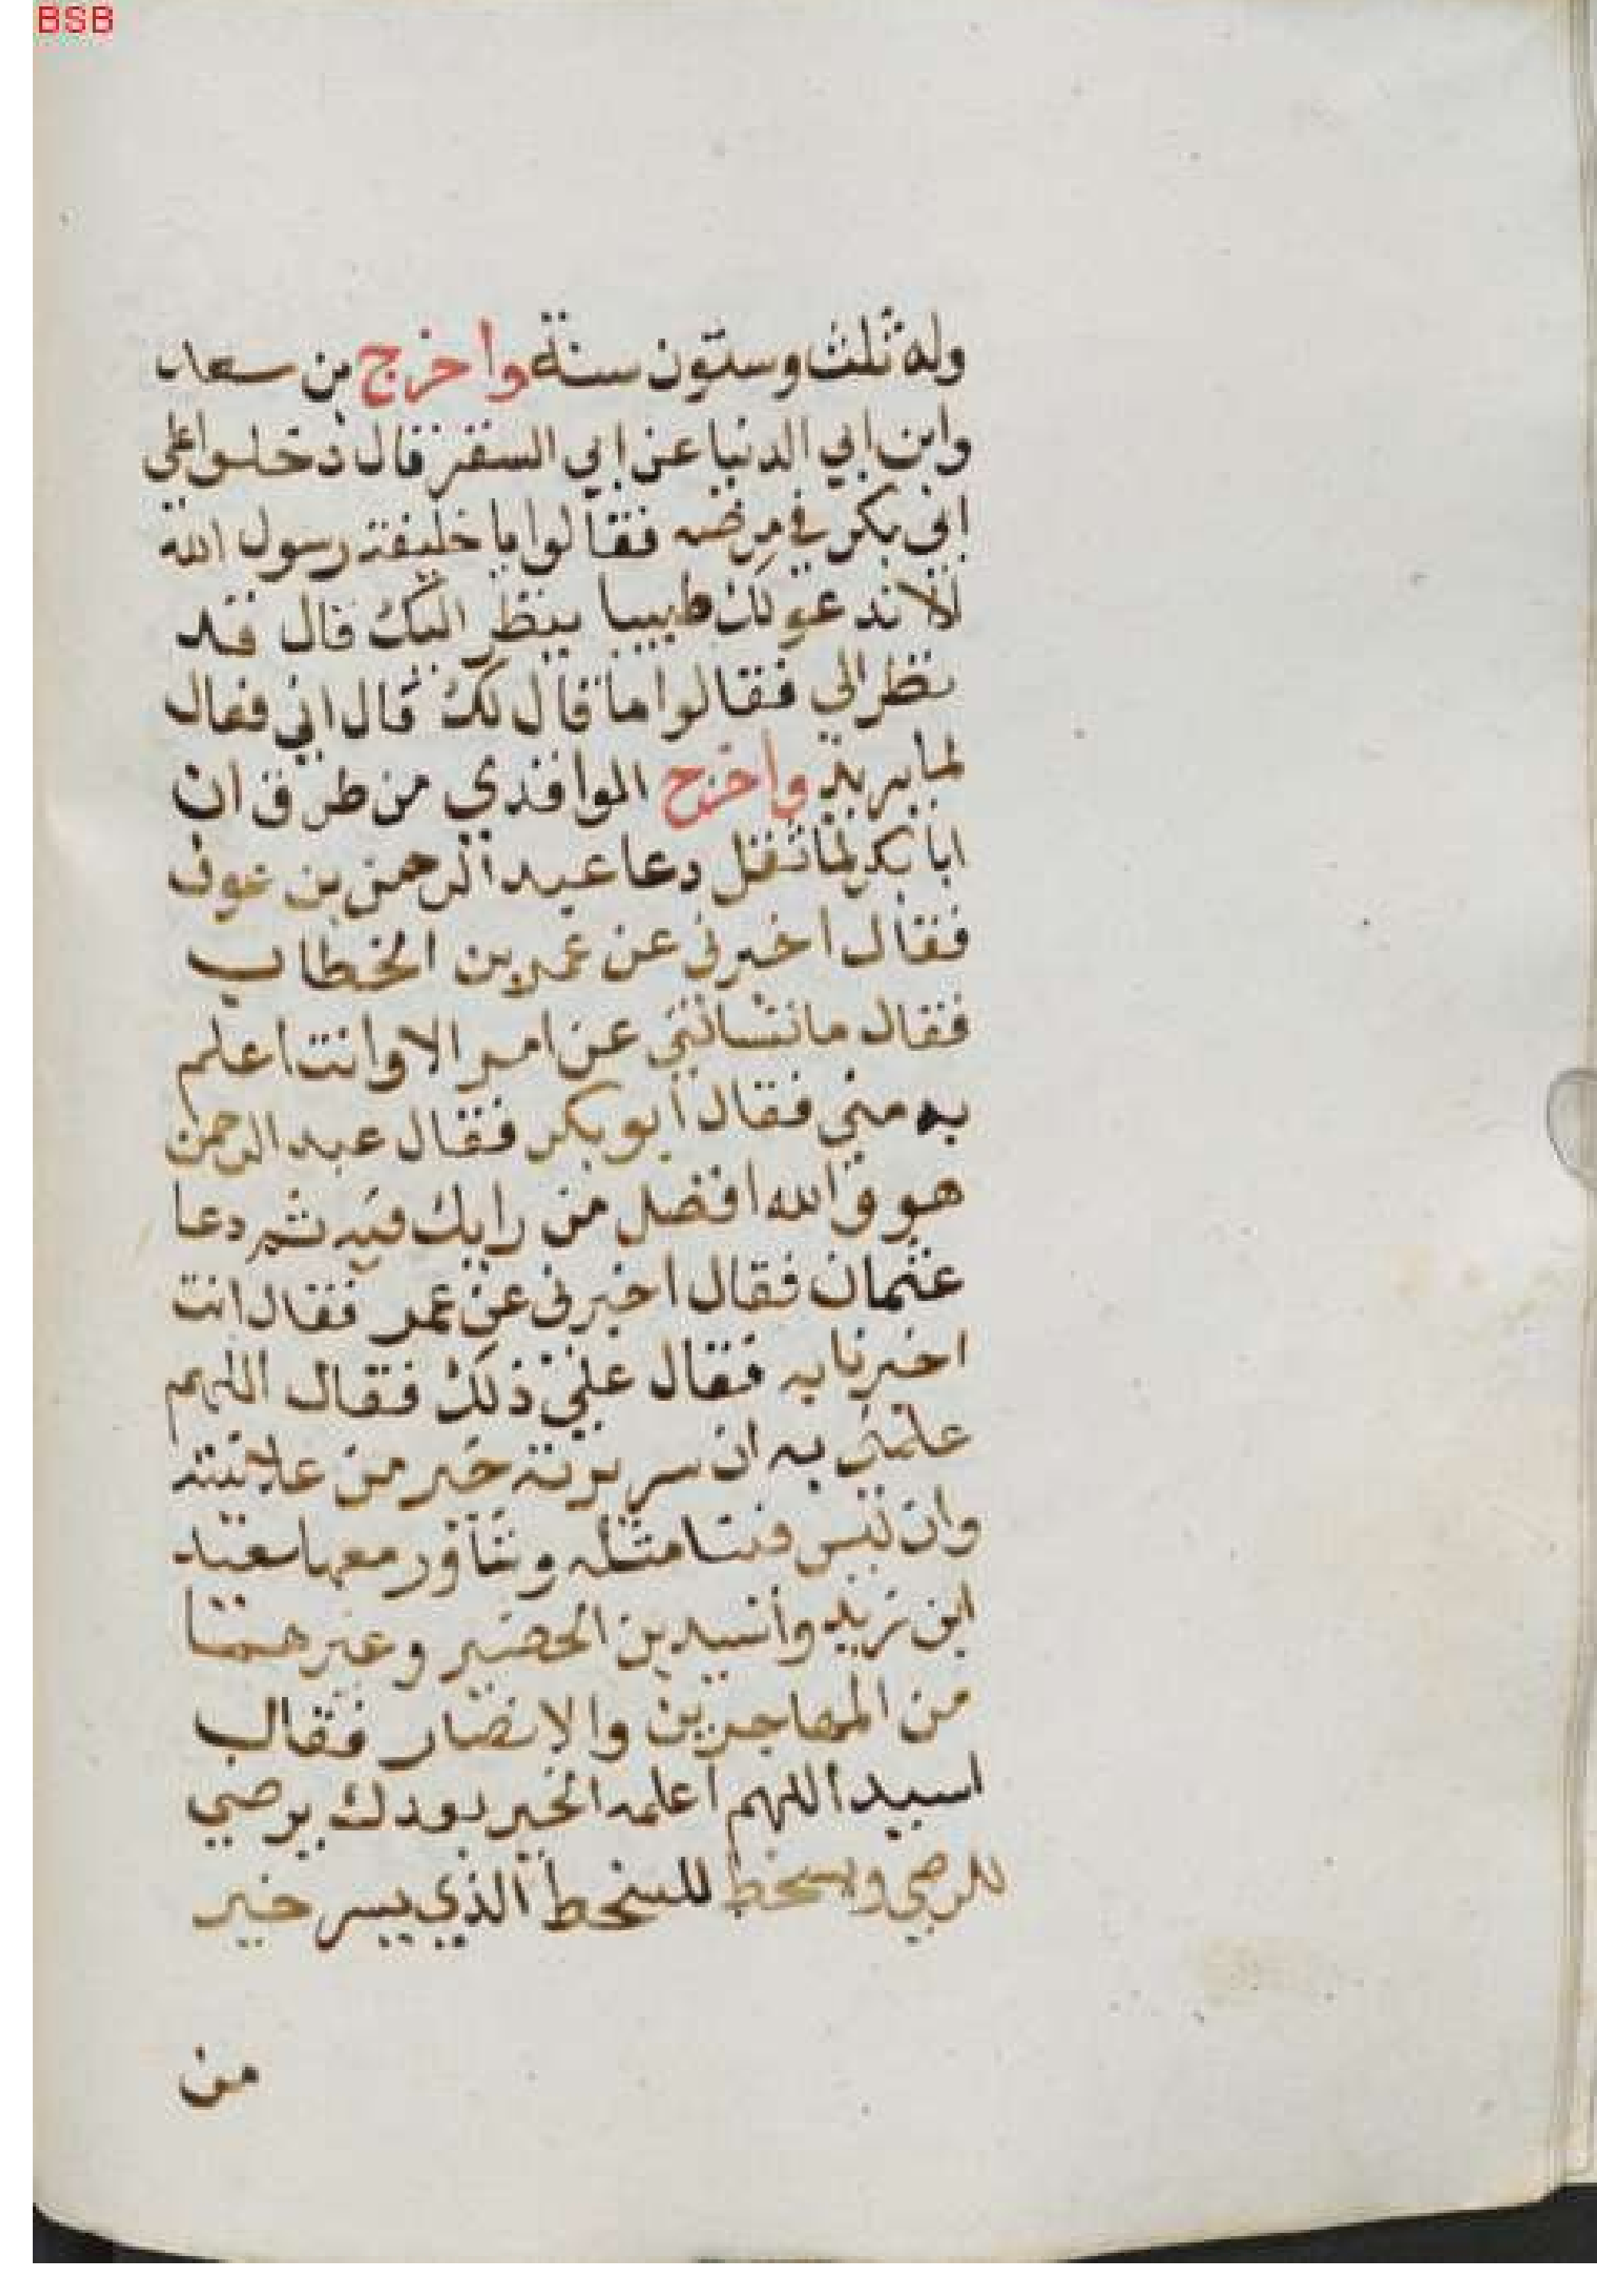 BSB
وله ثلث وستون سنة واخرج بن سعد
وابن ابي الدنيا عن ابي السفر قال دخلوا على
ابي بكر في مرضه فقالوا يا خليفة رسول الله
الا ندعو لك طبيبا ينظر اليك قال قد
نظر الي فقالوا ما قال لك قال اني فعال
لما يريد واخرج الواقدي من طرق ان
ابا بكر لما ثقل دعا عبد الرحمن بن عوف
فقال اخبرني عن عمر بن الخطاب
فقال ما تسالني عن امر الا وانت اعلم
به مني فقال ابو بكر فقال عبد الرحمن
هو والله افضل من رايك فيه ثم دعا
عثمان فقال اخبرني عن عمر فقال انت
اخبرنا به فقال علي ذلك فقال اللهم
علمي به ان سريرته خير من علانيته
وان ليس فينا مثله وشاور معهما سعيد
ابن زيد واسيد بن الحضير وغيرهما
من المهاجرين والانصار فقال
اسيد اللهم اعلمه الخير بعدك يرضي
للرضي ويسخط للسخط الذي يسر خير
من